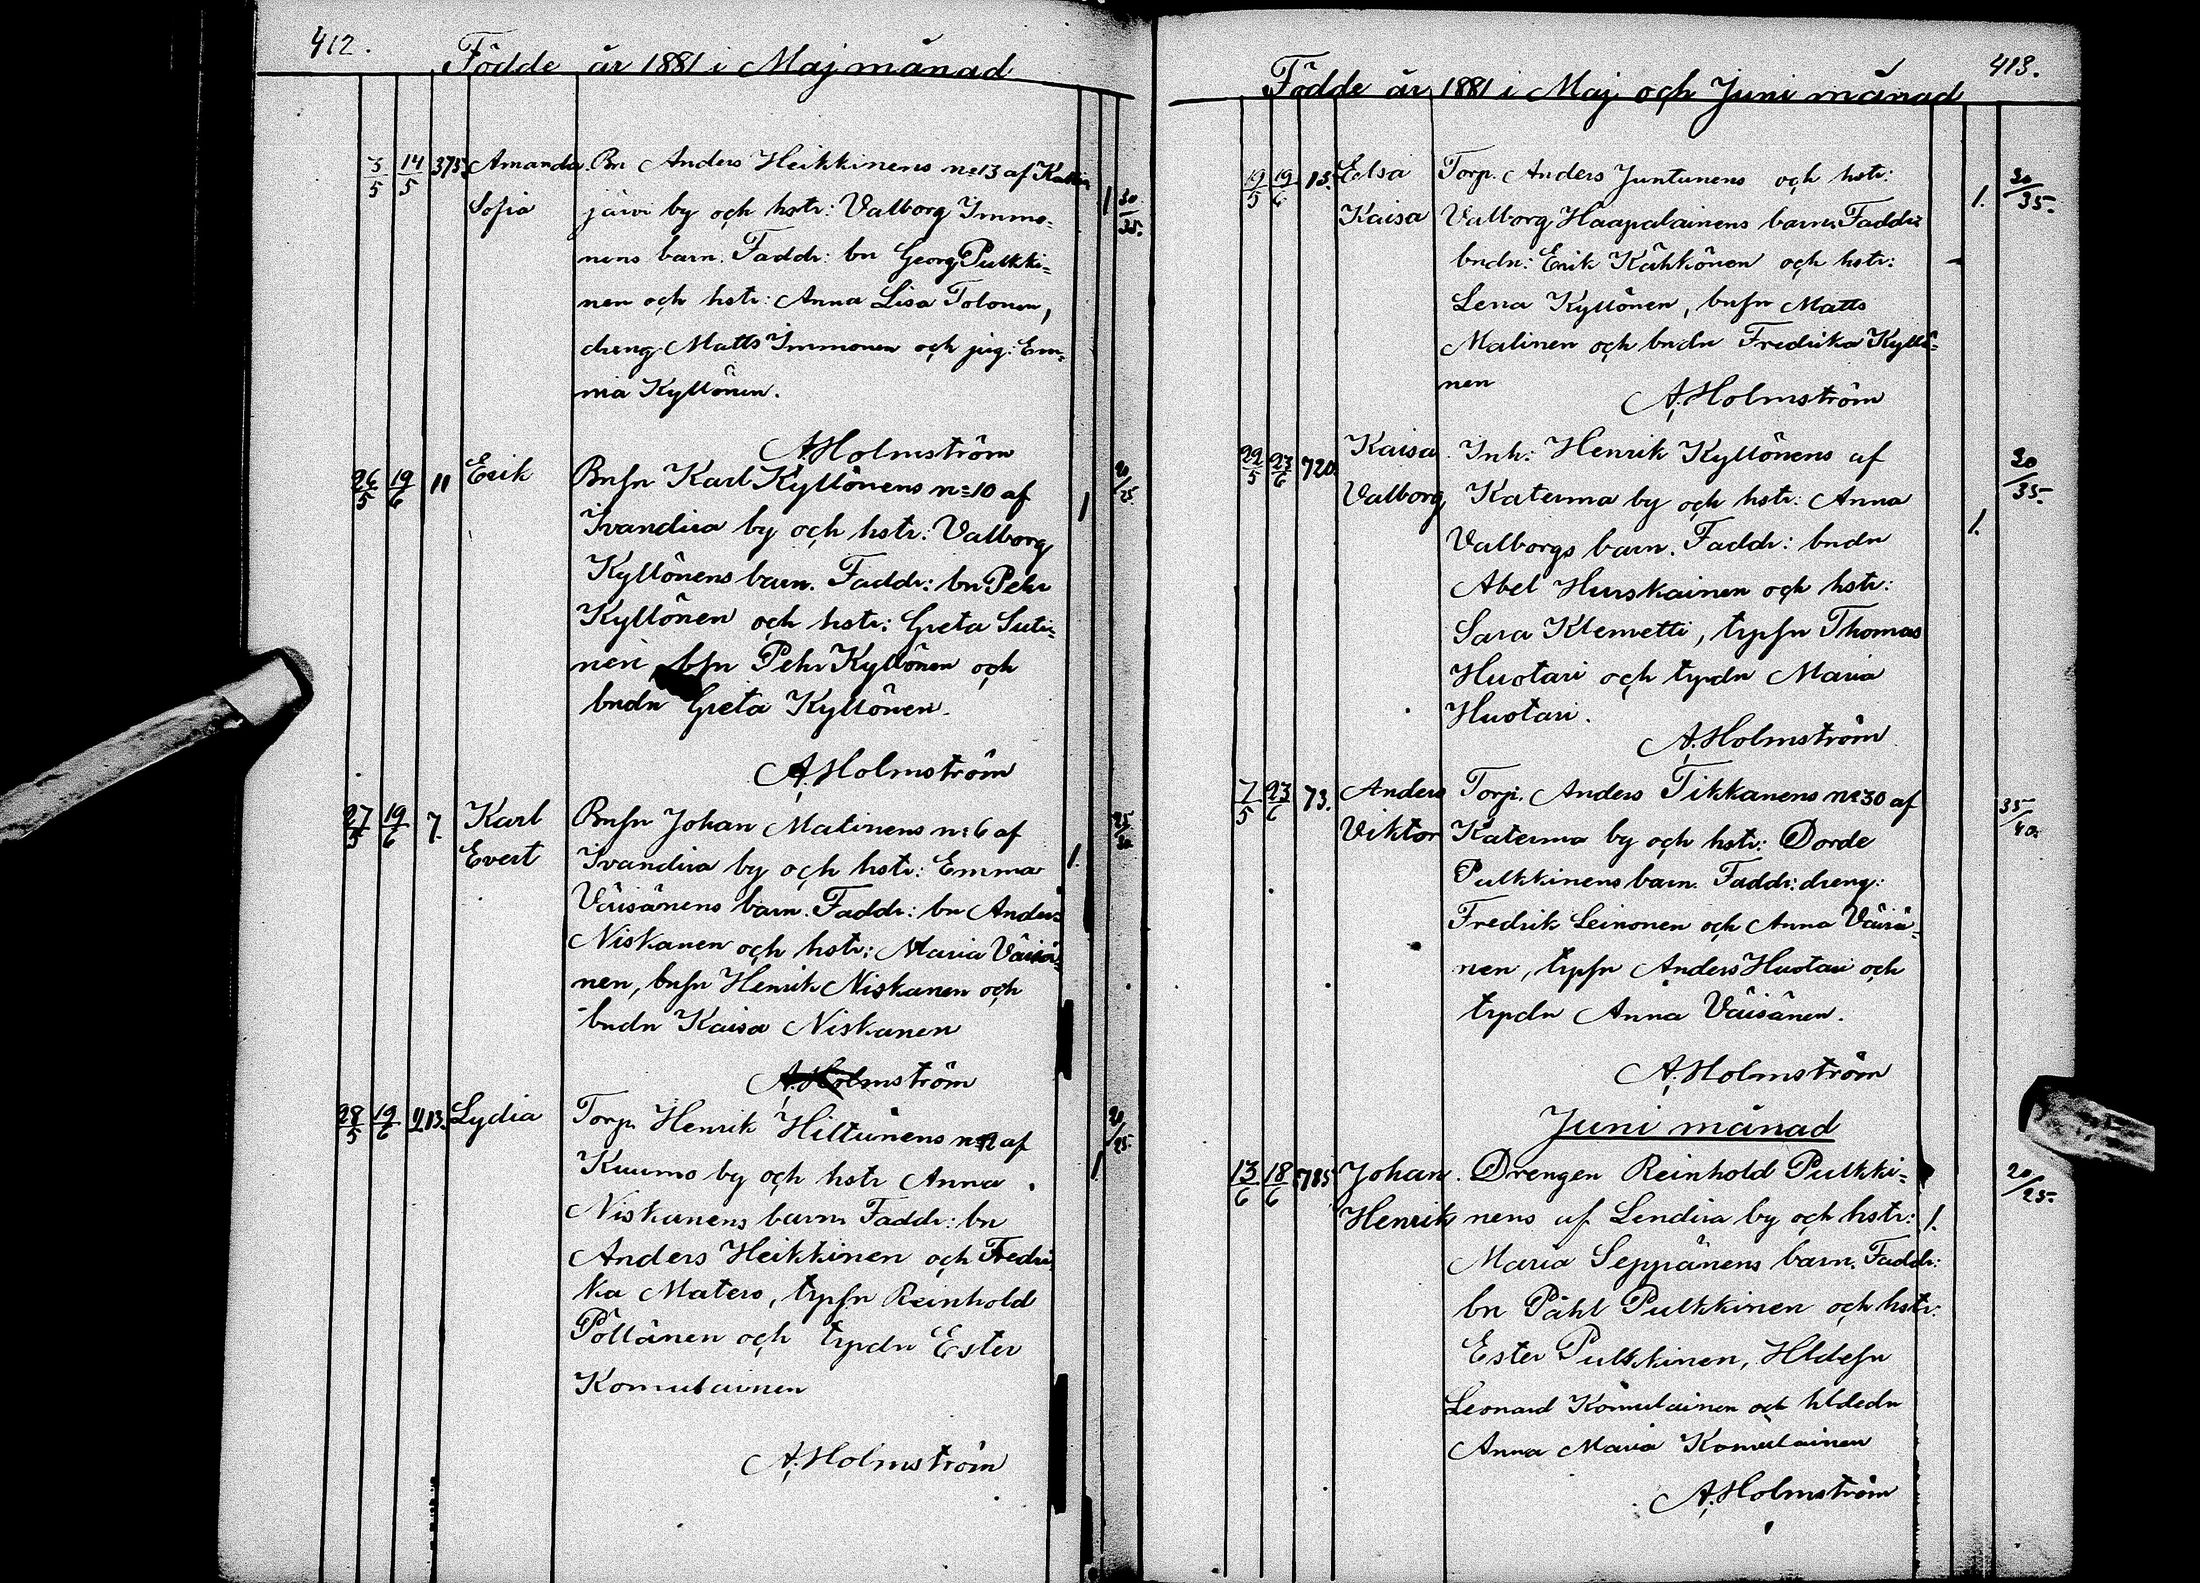 412.
Födde år 1881 i Maj månad
3/5 14/5 375. Amanda Bn Anders Heikkinens no 13 af
Sofia järvi by och hstr: Valborg Immo= 1 30/35.
nens barn. Faddr: bn Georg Pulkki=
nen och hstr: Anna Lisa Tolonen,
dreng Matts Immonen och pig: Em=
ma Kyllönen.
A. Holmström
26/5 19/6 11 Erik Bnsn Karl Kyllönens no 10 af 20/25.
Ivandira by och hstr: Valborg 1
Kyllönens barn. Faddr: bn Pehr
Kyllönen och hstr: Greta Suti=
nen, bsn Pehr Kyllönen och
bndr Greta Kyllönen.
A. Holmström
27/5 19/6 7. Karl Bnsn Johan Malinens no 6 af 25/30
Evert Ivandira by och hstr: Emma 1.
Väisänens barn. Faddr: bn Anders
Niskanen och hstr: Maria Väisä=
nen, bnsn Henrik Niskanen och
bndr Kaisa Niskanen
A. Holmström
28/5 19/6 Lydia Torp. Henrik Hiltunens no 12 af 20/25.
Kuumo by och hstr Anna 1.
Niskanens barn Faddr: bn
Anders Heikkinen och Fredri
ka Matero, trpsn Reinhold
Pöllänen och trpdr Ester
Komulainen
A. Holmström
413.
Födde år 1881 i Maj och Juni månad
19/5 19/6 13. Elsa Torp. Anders Juntunens och hstr: 30/35.
Kaisa Valborg Haapalainens barn. Faddr: 1.
bndr: Erik Kähkönen och hstr:
Lena Kyllönen, bnsn Matts
Malinen och bndr Fredrika Kyllö=
nen
A. Holmström
22/5 23/6 720. Kaisa Inh: Henrik Kyllönens af 30/35.
Valborg Katerma by och hstr: Anna
Valborgs barn. Faddr: bndr 1.
Abel Hurskainen och hstr:
Sara Klemetti, trpsn Thomas
Huotari och trpdr Maria
Huotari.
A. Holmström
7/5 23/6 73. Anders Torp. Anders Tikkanens no 30 af 35/40.
Viktor Katerma by och hstr: Dorde
Pulkkinens barn. Faddr: dreng:
Fredrik Leinonen och Anna Väisä=
nen, trpsn Anders Huotari och
trpdr Anna Väisänen.
A. Holmström
Juni månad
13/6 18/6 785 Johan Drengen Reinhold Pulkki= 20/25.
Henrik nens af Lendira by och hstr: 1.
Maria Seppänens barn. Faddr:
bn Påhl Pulkkinen och hstr:
Ester Pulkkinen, Hldesn
Leonard Komulainen och hldedr
Anna Maria Komulainen
A. Holmström